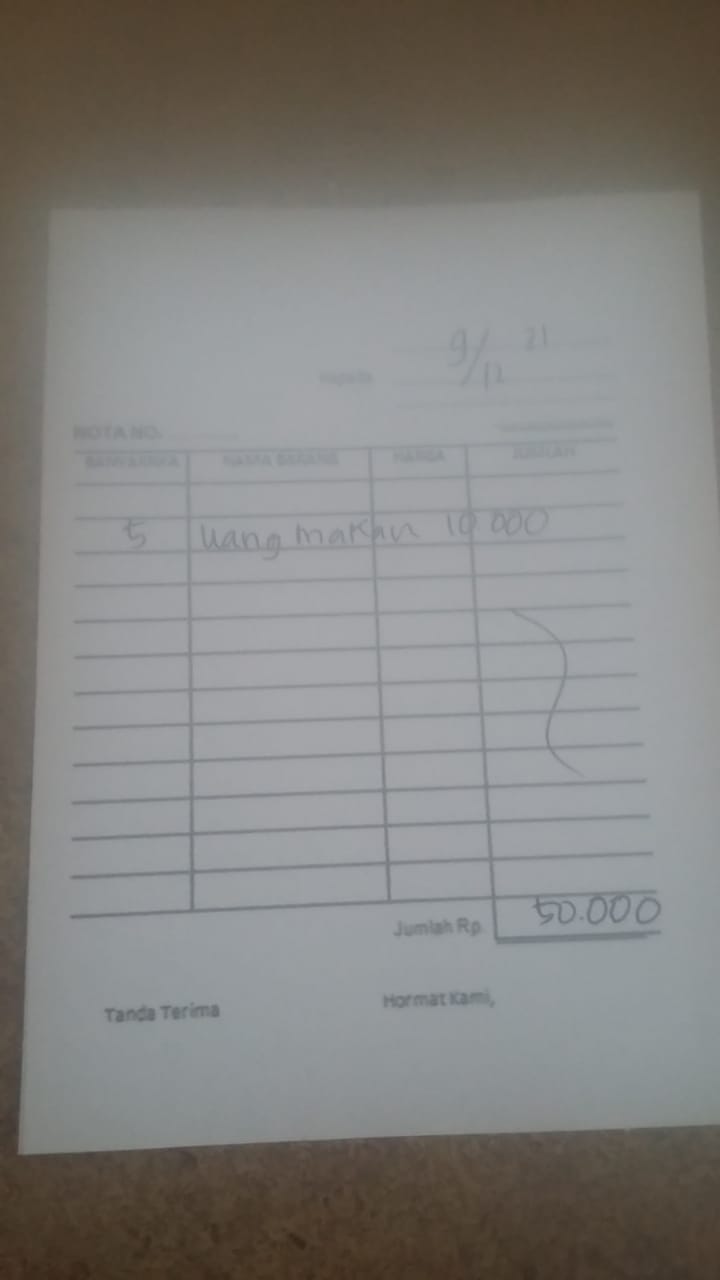 9/12 21
Kepada
NOTA NO.
BANYAKNYA NAMA BARANG HARGA JUMLAH
5 uang makan 10 000
Jumlah Rp. 50.000
Tanda Terima Hormat Kami,